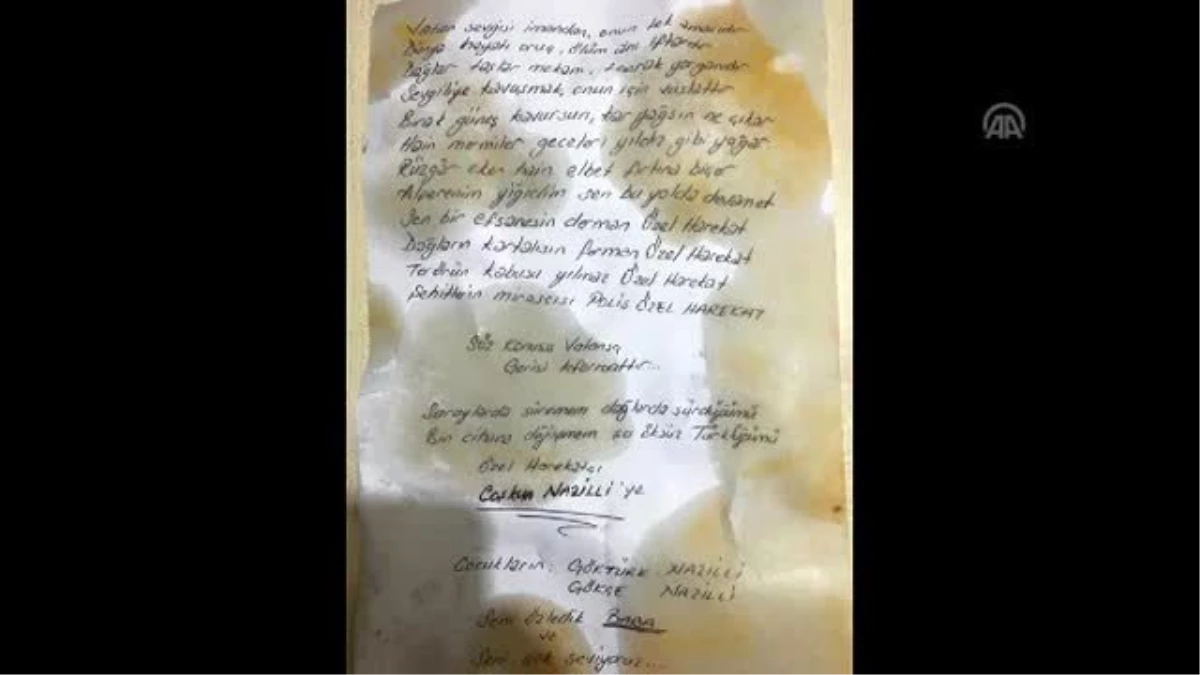 Vatan sevgisi imandan, onun tek amacıdır
Dünya hayatı oruç, ölüm anı iftardır
Dağlar taşlar mekanı, toprak yorganıdır
Sevgiliye kavuşmak, onun için vuslattır
Bırak güneş kavursun, kar yağsın ne çıkar
Hain mermiler geceleri yıldız gibi yağar
Rüzgâr eken hain elbet fırtına biçer
Alperenim yiğidim sen bu yolda devam et
Sen bir efsanesin derman Özel Harekat
Dağların kartalısın ferman Özel Harekat
Terörün kabusu yılmaz Özel Harekat
Şehitlerin mirasçısı POLİS ÖZEL HAREKAT
Söz Konusu Vatansa
Gerisi teferruattır...
Saraylarda süremem dağlarda sürdüğümü
Bin cihana değişmem şu öksüz Türklüğümü
Özel Harekatçı
Coşkun NAZİLLİ'ye
Çocukların: GÖKTÜRK NAZİLLİ
GÖKÇE NAZİLLİ
Seni özledik BABA
ve
Seni çok seviyoruz...
AA